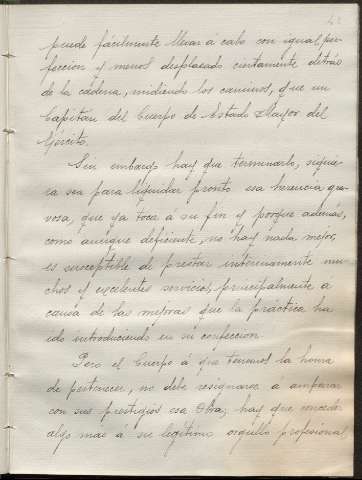 puede fácilmente llevar á cabo con igual per-
feccion y menos desplacado ciertamente detrás
de la cadena, midiendo los caminos, que un
Capitán del Cuerpo de Estado Mayor del
Ejército.
Sin embargo hay que terminarlo, siquie-
ra sea para liquidar pronto esa herencia gra-
vosa, que ya toca á su fin y porque además,
como aunque deficiente, no hay nada mejor,
es susceptible de prestar interinamente mu-
chos y excelentes servicios, principalmente a
causa de las mejoras que la práctica ha
ido introduciendo en su confeccion.
Pero el Cuerpo á que tenemos la honra
de pertenecer, no debe resignarse a amparar
con sus prestigios esa Obra; hay que conceder
algo mas á su legítimo orgullo profesional